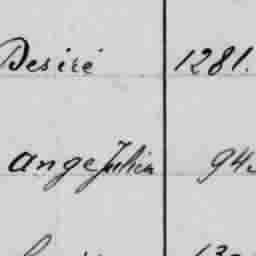 Desiré 1281.
Ange Julien 94